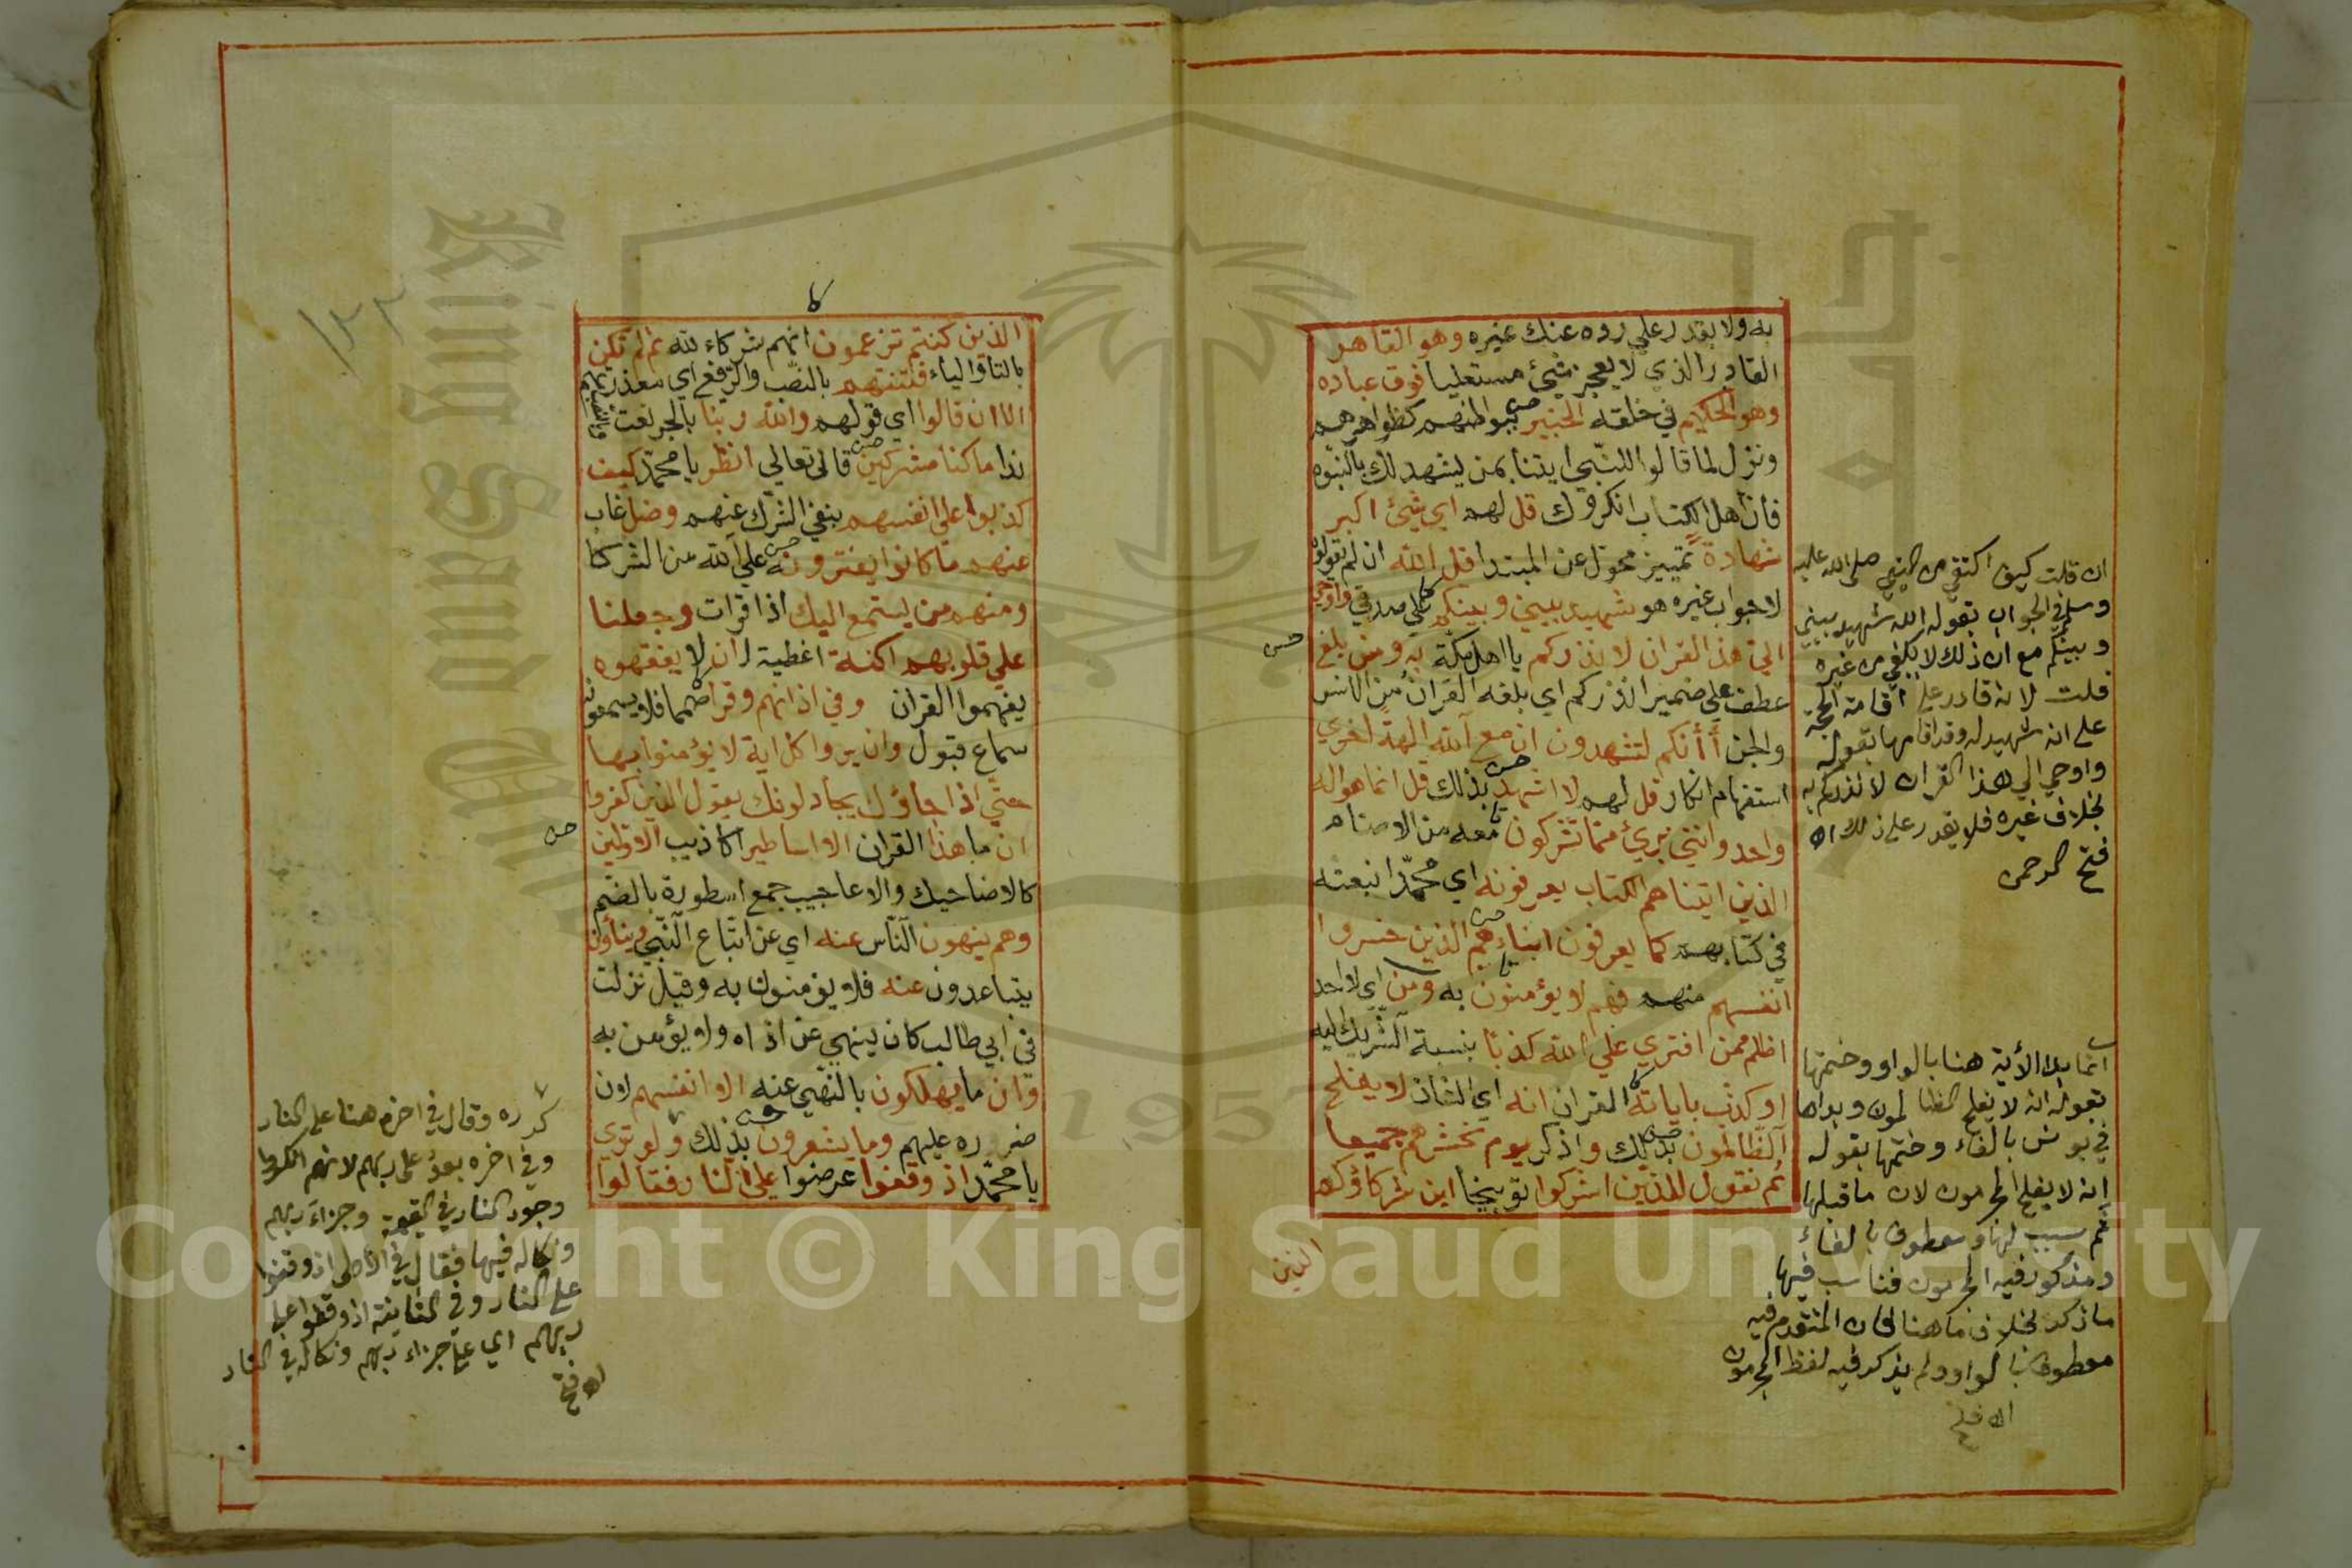 به ولا يقدر علي رده عنك غيره وهو القاهر
القادر الذي لا يعجزه شيئ مستعليا فوق عباده
وهو الحكيم في خلقه الخبير ببواطنهم كظواهرهم
ونزل لما قالوا للنبي ايتنا بمن يشهد لك بالنبوة
فان اهل الكتاب انكروك قل لهم اي شيئ اكبر
شهادة تمييز محول عن المبتدا قل الله ان لم تقولوه
لا جواب غيره هو شهيد بيني وبينكم علي صدقي واوحي
الي هذا القران لانذركم يا اهل مكة به ومن بلغ
عطف علي ضمير انذركم اي بلغه القران من الانس
والجن أأنكم لتشهدون ان مع الله الهة اخري
استفهام انكار قل لهم لا اشهد بذلك قل انما هو اله
واحد وانني بريئ مما تشركون معه من الاصنام
الذين اتيناهم الكتاب يعرفونه اي محمدا بنعته
في كتابهم كما يعرفون ابناءهم الذين خسروا
انفسهم منهم فهم لا يؤمنون به ومن اي لا احد
اظلم ممن افتري علي الله كذبا بنسبة الشريك اليه
او كذب باياته القران انه اي الشان لا يفلح
الظالمون بذلك واذكر يوم نحشرهم جميعا
ثم نقول للذين اشركوا توبيخا اين شركاؤكم
الذين
ان قلت كيف اكتفي من النبي صلى الله عليه
وسلم في الجواب بقوله الله شهيد بيني
وبينكم مع ان ذلك لا يكفي من غيره
قلت لانه قادر علي اقامة الحجة
على انه شهيد له وقد اقامها بقوله
واوحي الي هذا القران لانذركم به
بخلاف غيره فلا يقدر على ذلك اه
فتح الرحمن
انما بدا الأية هنا بالواو وختمها
بقوله انه لا يفلح الظالمون وبداها
في يونس بالفاء وختمها بقوله
انه لا يفلح المجرمون لان ما قبلها
ثم سبب لها ومعطوف بالفاء
ومذكور فيه المجرمون فناسب فيها
ما ذكر بخلاف ما هنا فان المتقدم فيه
معطوف بالواو ولم يذكر فيه لفظ المجرمون
الذين كنتم تزعمون انهم شركاء لله ثم لم تكن
بالتا والياء فتنتهم بالنصب والرفع اي معذرتهم
الا ان قالوا اي قولهم والله ربنا بالجر نعت والنصب
ندا ما كنا مشركين قال تعالي انظر يا محمد كيف
كذبوا علي انفسهم بنفي الشرك عنهم وضل غاب
عنهم ما كانوا يفترونه علي الله من الشركا
ومنهم من يستمع اليك اذا قرات وجعلنا
علي قلوبهم اكنة اغطية لان لا يفقهوه
يفهموا القران وفي اذانهم وقرا صمما فلا يسمعونه
سماع قبول وان يروا كل اية لا يؤمنوا بها
حتي اذا جاؤك يجادلونك يقول الذين كفروا
ان ما هذا القران الا اساطير اكاذيب الاولين
كالاضاحيك والاعاجيب جمع اسطورة بالضم
وهم ينهون الناس عنه اي عن اتباع النبي وينأون
يتباعدون عنه فلا يؤمنون به وقيل نزلت
في ابي طالب كان ينهي عن اذاه ولا يؤمن به
وان ما يهلكون بالنهي عنه الا انفسهم لان
ضرره عليهم وما يشعرون بذلك ولو تري
يا محمد اذ وقفوا عرضوا علي النار فقالوا
كرره وقال في اخره هنا على النار
وفي اخره بعد على ربهم لانهم انكروا
وجود النار في القيمة وجزاء ربهم
ونكاله فيها فقال في الاولى اذ وقفوا
على النار وفي الثانية اذ وقفوا على
ربهم اي على جزاء ربهم ونكاله في النار
اه فتح
Copyright © King Saud University
King Saud
1957